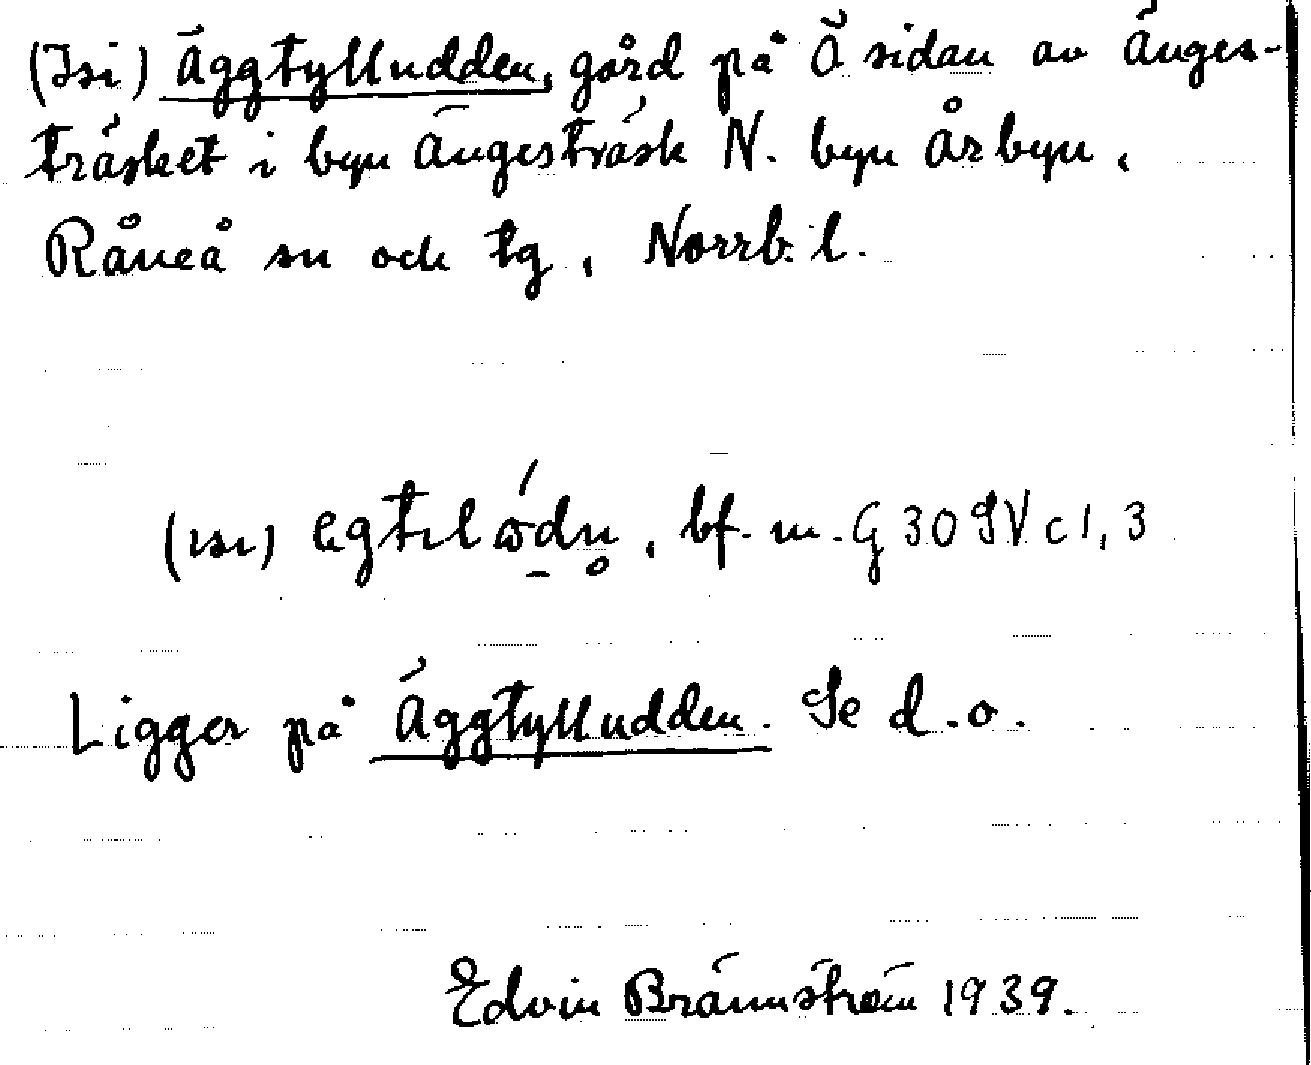 (Isi) Äggtylludden, gård på Ö sidan av Änges-
träsket i byn Ängesträsk N. byn Årbyn,
Råneå sn och tg, Norrb. l.
(ısı) bf. m. G 30 SV c 1, 3
Ligger på Äggtylludden. Se d. o.
Edvin Brännström 1939.